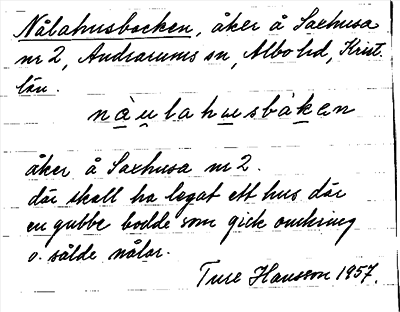 Nålahusbacken, åker å Saxhusa
nr 2, Andrarums sn, Albo hd, Krist.
län.
nàulahusbàken
åker å Saxhusa nr 2.
där skall ha legat ett hus där
en gubbe bodde som gick omkring
o. sålde nålar.
Ture Hansson 1957.